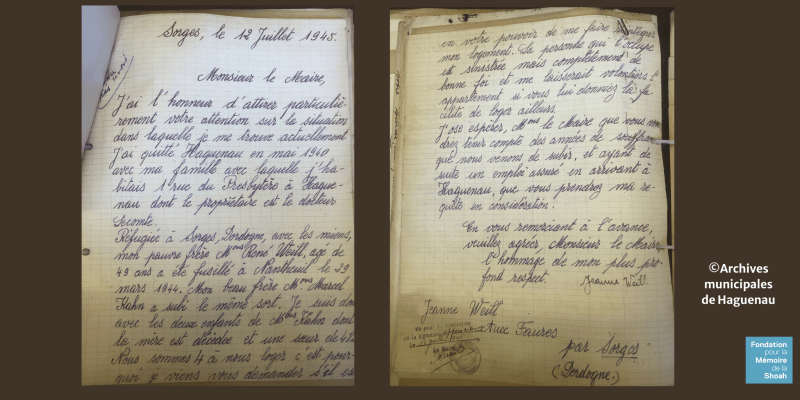 Sorges, le 12 Juillet 1945.
Monsieur le Maire,
J'ai l'honneur d'attirer particuliè-
rement votre attention sur la situation
dans laquelle je me trouve actuellement
J'ai quitté Haguenau en mai 1940
avec ma famille avec laquelle j'ha-
bitais 1 rue du Presbytère à Hague-
nau dont le propriétaire est le docteur
Lecomte.
Réfugiée à Sorges, Dordogne, avec les miens,
mon pauvre frère Mr René Weill, agé de
49 ans a été fusillé à Nantheuil le 29
mars 1944. Mon beau frère Marcel
Kahn a subi le même sort. Je suis donc
avec les deux enfants de Kahn dont
la mère est décédée et une sœur de
Nous sommes 4 à nous loger c'est pour-
quoi je viens vous demander s'il est
en votre pouvoir de me faire réintégrer
mon logement. La personne qui l'occupe
est sinistrée mais complètement de
bonne foi et me laisserait volontiers l'
appartement si vous lui donniez la fa-
cilité de loger ailleurs.
J'ose espérer, le Maire que vous
drez leur compte des années de
que nous venons de subir, et ayant de
suite un emploi assuré en arrivant à
Haguenau, que vous prendrez ma re-
quête en considération.
En vous remerciant à l'avance,
veuillez agréer, Monsieur le Maire
l'hommage de mon plus pro-
fond respect.
Jeanne Weill.
Jeanne Weill
Aux Faures
par Sorges
(Dordogne.)
©Archives
municipales
de Haguenau
Fondation
pour la
Mémoire
de la
Shoah